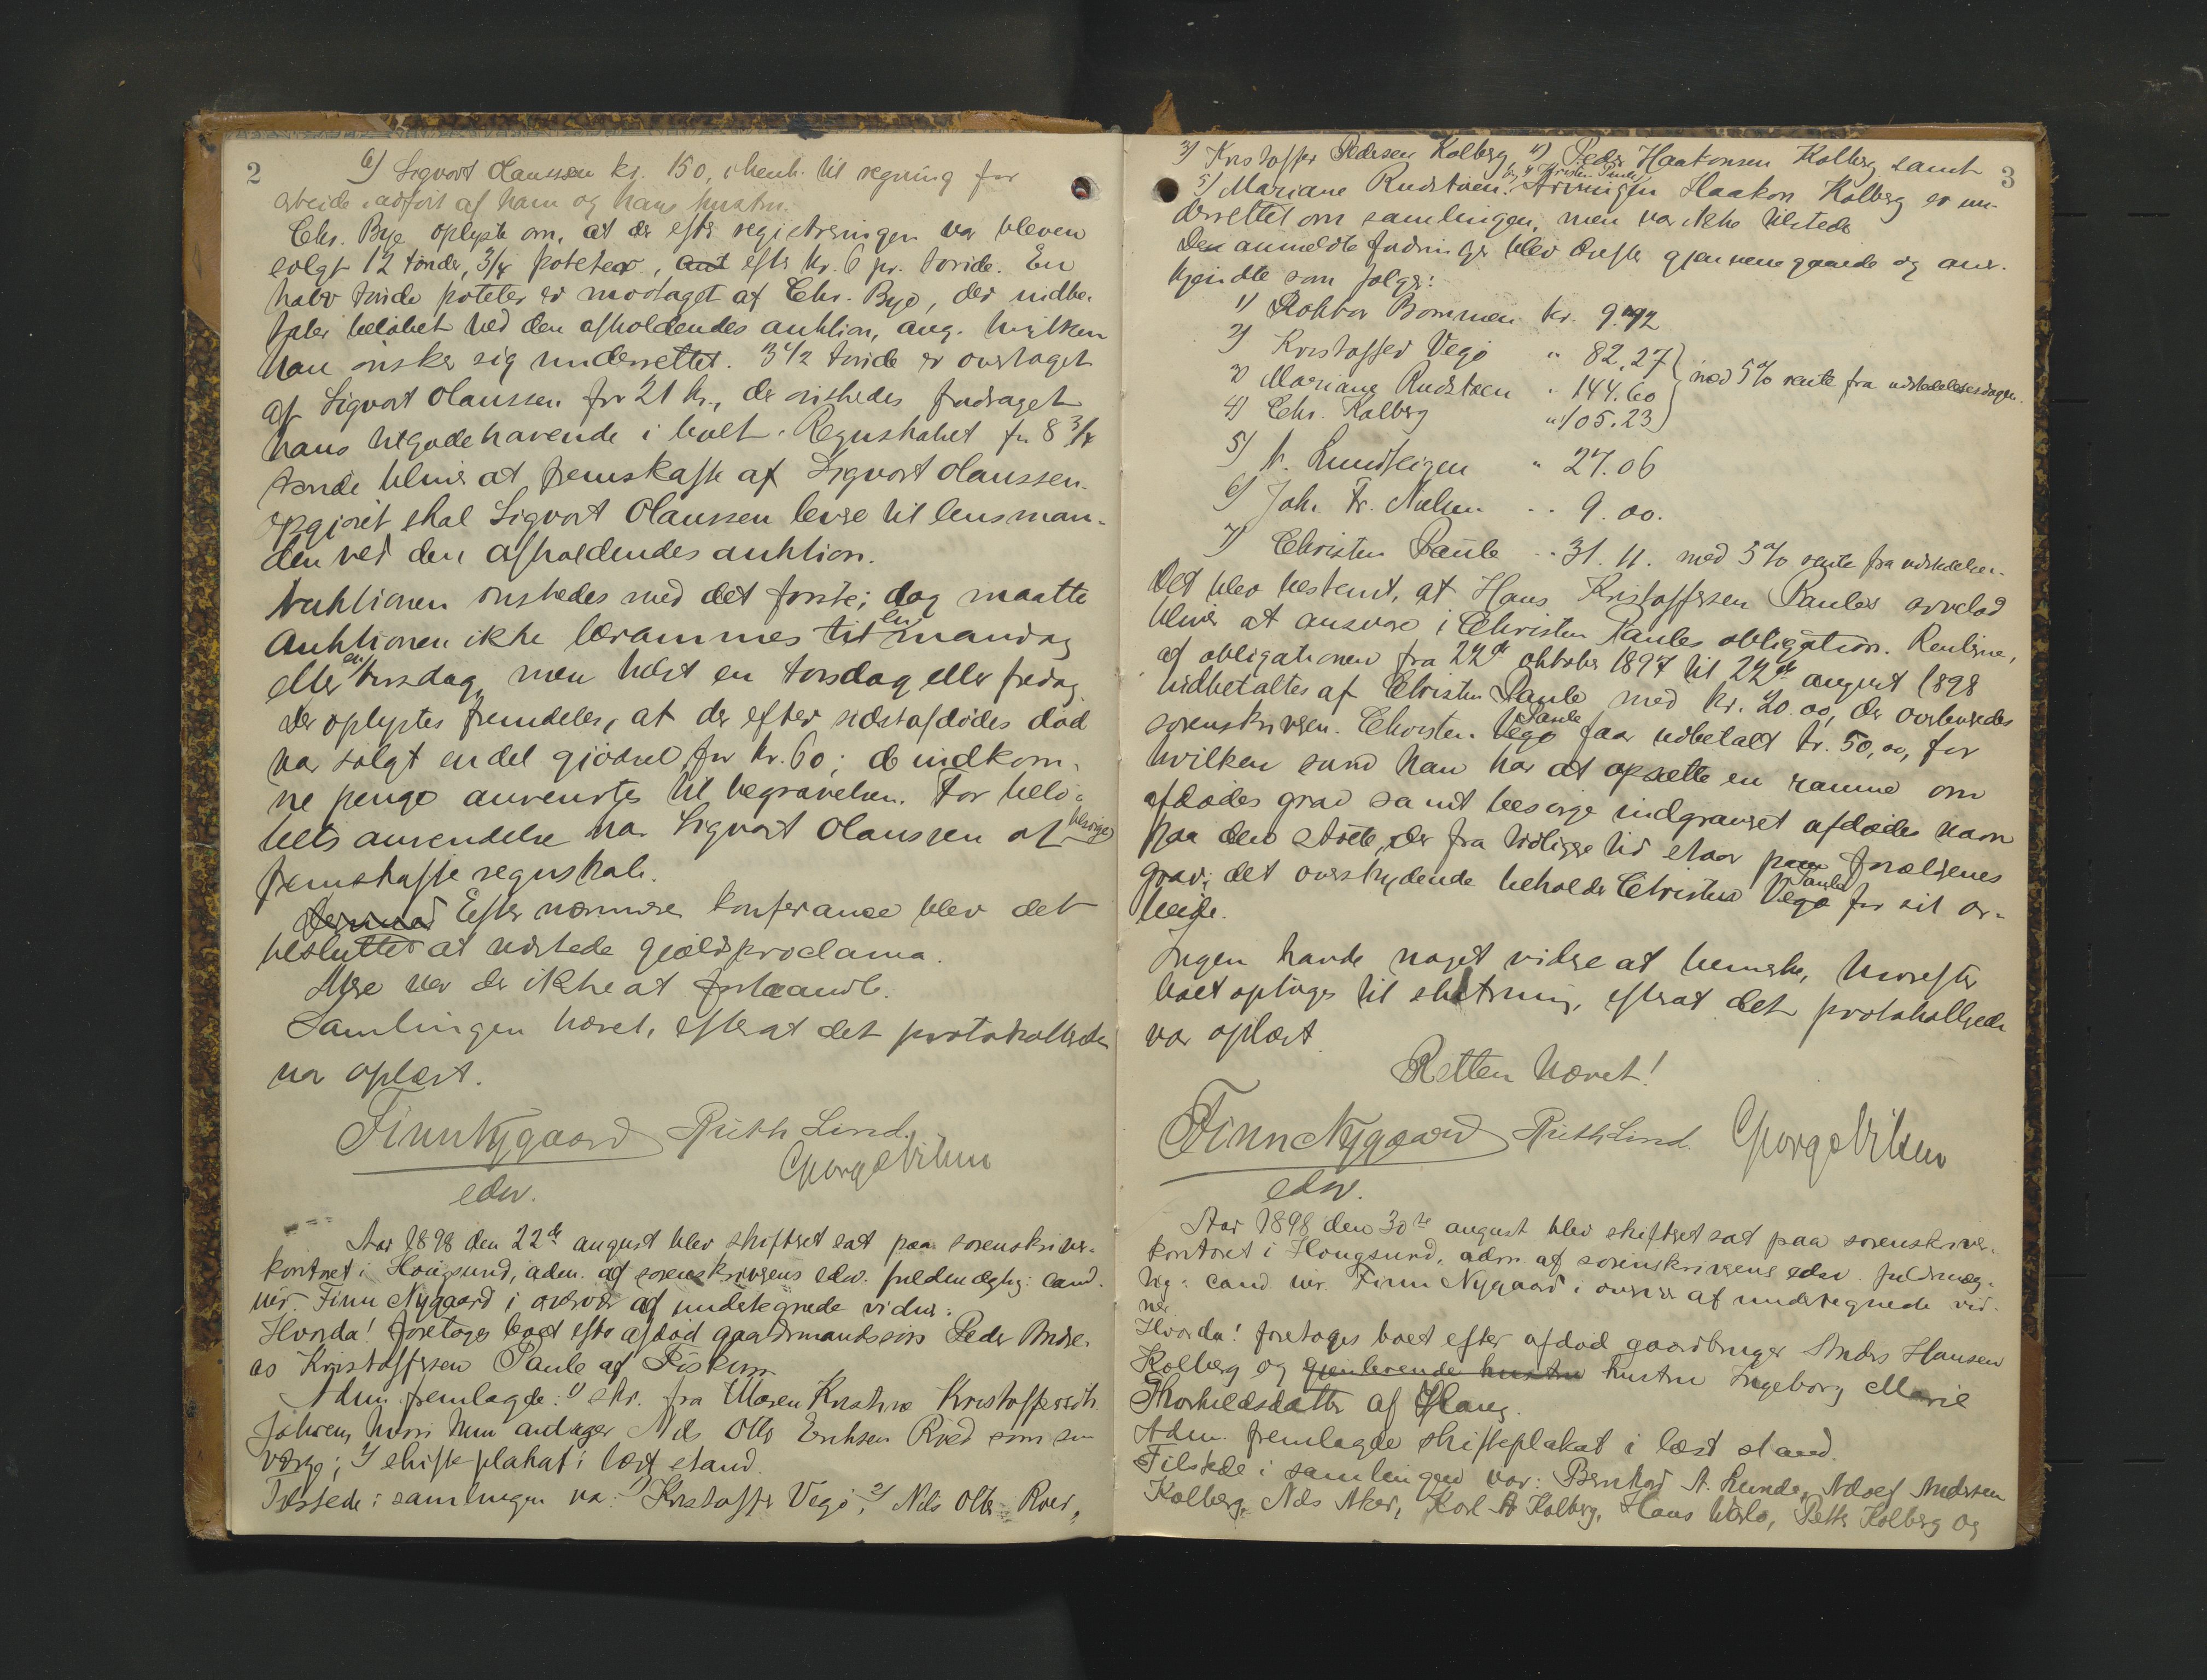 2
6) Sigvart Olaussen kr. 150, i henh. til regning for
arbeide udført af ham og hans hustru.
Chr. Bye oplyste om, at der efter registreringen var bleven
solgt 12 tønder, 3/4 poteter, ant efter kr. 6 pr. tønde. En
halv tønde poteter er modtaget af Chr. Bye, der indbe-
taler beløbet ved den afholdendes auktion, ang. hvilken
han ønsker sig underrettet. 3 1/2 tønde er overtaget
af Sigvart Olaussen for 21 kr., der ønskedes fradraget
hans tilgodehavende i boet. Regnskabet for 8 3/4
tønde bliver at fremskaffe af Sigvart Olaussen.
Opgjøret skal Sigvart Olaussen levere til lensman-
den ved den afholdendes auktion.
Auktionen ønskedes med det første; dog maatte
Auktionen ikke berammes til en mandag
eller en tirsdag, men helst en torsdag eller fredag.
Der oplystes fremdeles, at der efter sidstafdødes død
var solgt endel gjødsel for kr. 60; de indkom-
ne penge anvendtes til begravelsen. For belø-
bets anvendelse har Sigvart Olaussen at
fremskaffe regnskab.
Dermed Efter nærmere konferance blev det
besluttet at udstede gjældsproclama.
Mere var der ikke at forhandle.
Samlingen hævet, efterat det protokollerede
var oplæst.
Finn Nygaard Ruth Lind.
Georg Nilsen
edsv.
Aar 1898 den 22de august blev skifteret sat paa sorenskriver-
kontoret i Hougsund, adm. af sorenskriverens edsv. fuldmægtig: cand.
jur. Finn Nygaard i overvær af undertegnede vidner:
Hvorda! foretoges boet efter afdød gaardmandssøn Peder Andre-
as Kristoffersen Paule af Fiskum
Adm. fremlagde: 1) skr. fra Maren Kristine Kristoffersdtr.
hvori hun antager Nils Otto Eriksen Røed som sin
værge; 2) skifteplakat i læst stand.
Tilstede i samlingen var: 1) Kristoffer Vego, 2) Nils Otto Røed,
3
3) Kristoffer Pedersen Kolberg, 4) Peder Haakonsen Kolberg samt
5) Mariane Rudstøen. og 6) Christen Paule
Arvingen Haakon Kolberg er un-
derrettet om samlingen, men var ikke tilstede
Den anmeldte fordringer blev derefter gjennemgaaede og aner-
kjendte som følger:
1) Doktor Bommen kr. 9.92
2) Kristoffer Vego " 82.27
3) Mariane Rudstøen " 144.60 med 5% rente fra udstedelsesdagen.
4) Chr. Kolberg " 105.23
5) A. Lundteigen " 27.06
6) Joh. Fr. Nielsen " 9.00.
7) Christen Paule " 31.11. med 5% rente fra udstedelsen.
Det blev bestemt, at Hans Kristoffersen Paules arvelod
bliver at ansvare i Christen Paules obligation. Renterne,
af obligationen fra 22de oktober 1897 til 22de august 1898
indbetaltes af Christen Paule med kr. 20.00, der overleveredes
sorenskriveren. Christen Vego Paule faar udbetalt kr. 50,00, for
hvilken sum han har at opsætte en ramme om
afdødes grav samt besørge indgraveret afdødes navn
paa den støtte, der fra tidligere tid staar paa forældrenes
grav; det overskydende beholder Christen Vego Paule for sit ar-
beide.
Ingen havde noget videre at bemerke, hvorefter
boet optoges til slutning, efterat det protokollerede
var oplæst.
Retten hævet!
Finn Nygaard Ruth Lind. Georg Nilsen
edsv.
Aar 1898 den 30te august blev skifteret sat paa sorenskriver-
kontoret i Hougsund, adm. af sorenskriverens edsv. fuldmæg-
tig: cand jur. Finn Nygaard i overvær af undertegnede vid-
ner.
Hvorda! foretoges boet efter afdød gaardbruger Anders Hansen
Kolberg og gjenlevende hustru hustru Ingeborg Marie
Thorkildsdatter af Houg.
Adm. fremlagde skifteplakat i læst stand.
Tilstede i samlingen var: Bernhard A. Lunde, Adolf Andersen
Kolberg, Nils Aker, Karl A Kolberg, Hans Petter Kolberg og